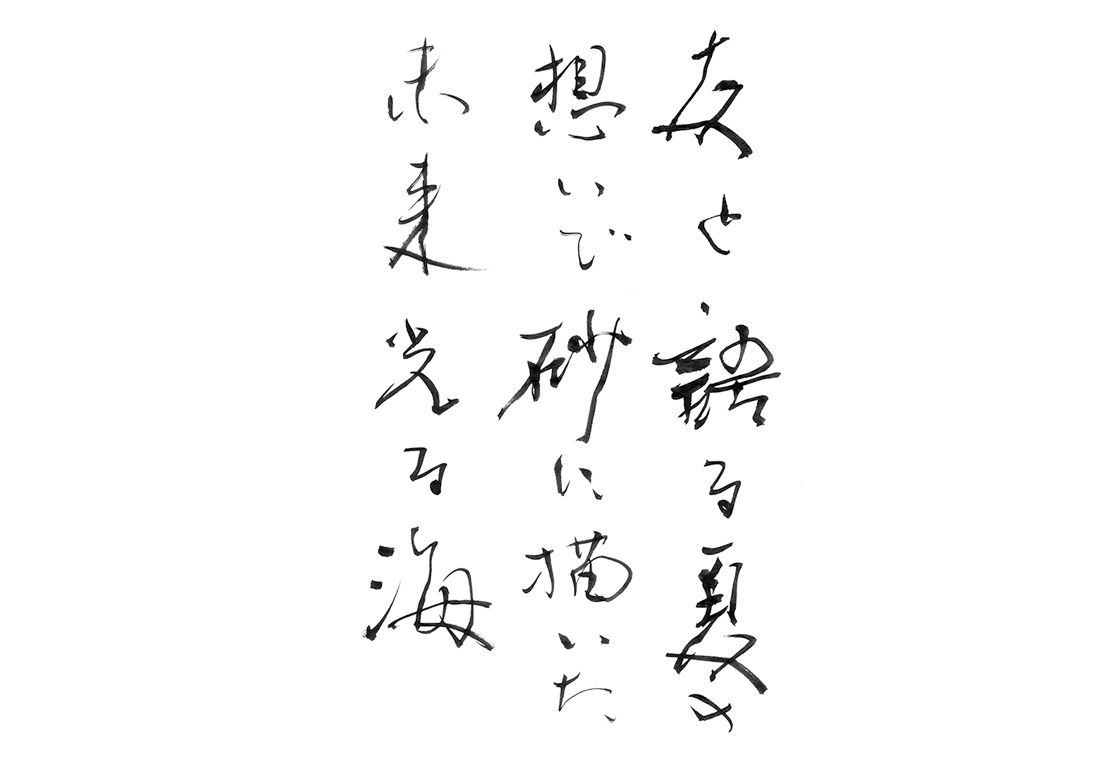 友と語る夏の
想いで砂に描いた
未来光る海